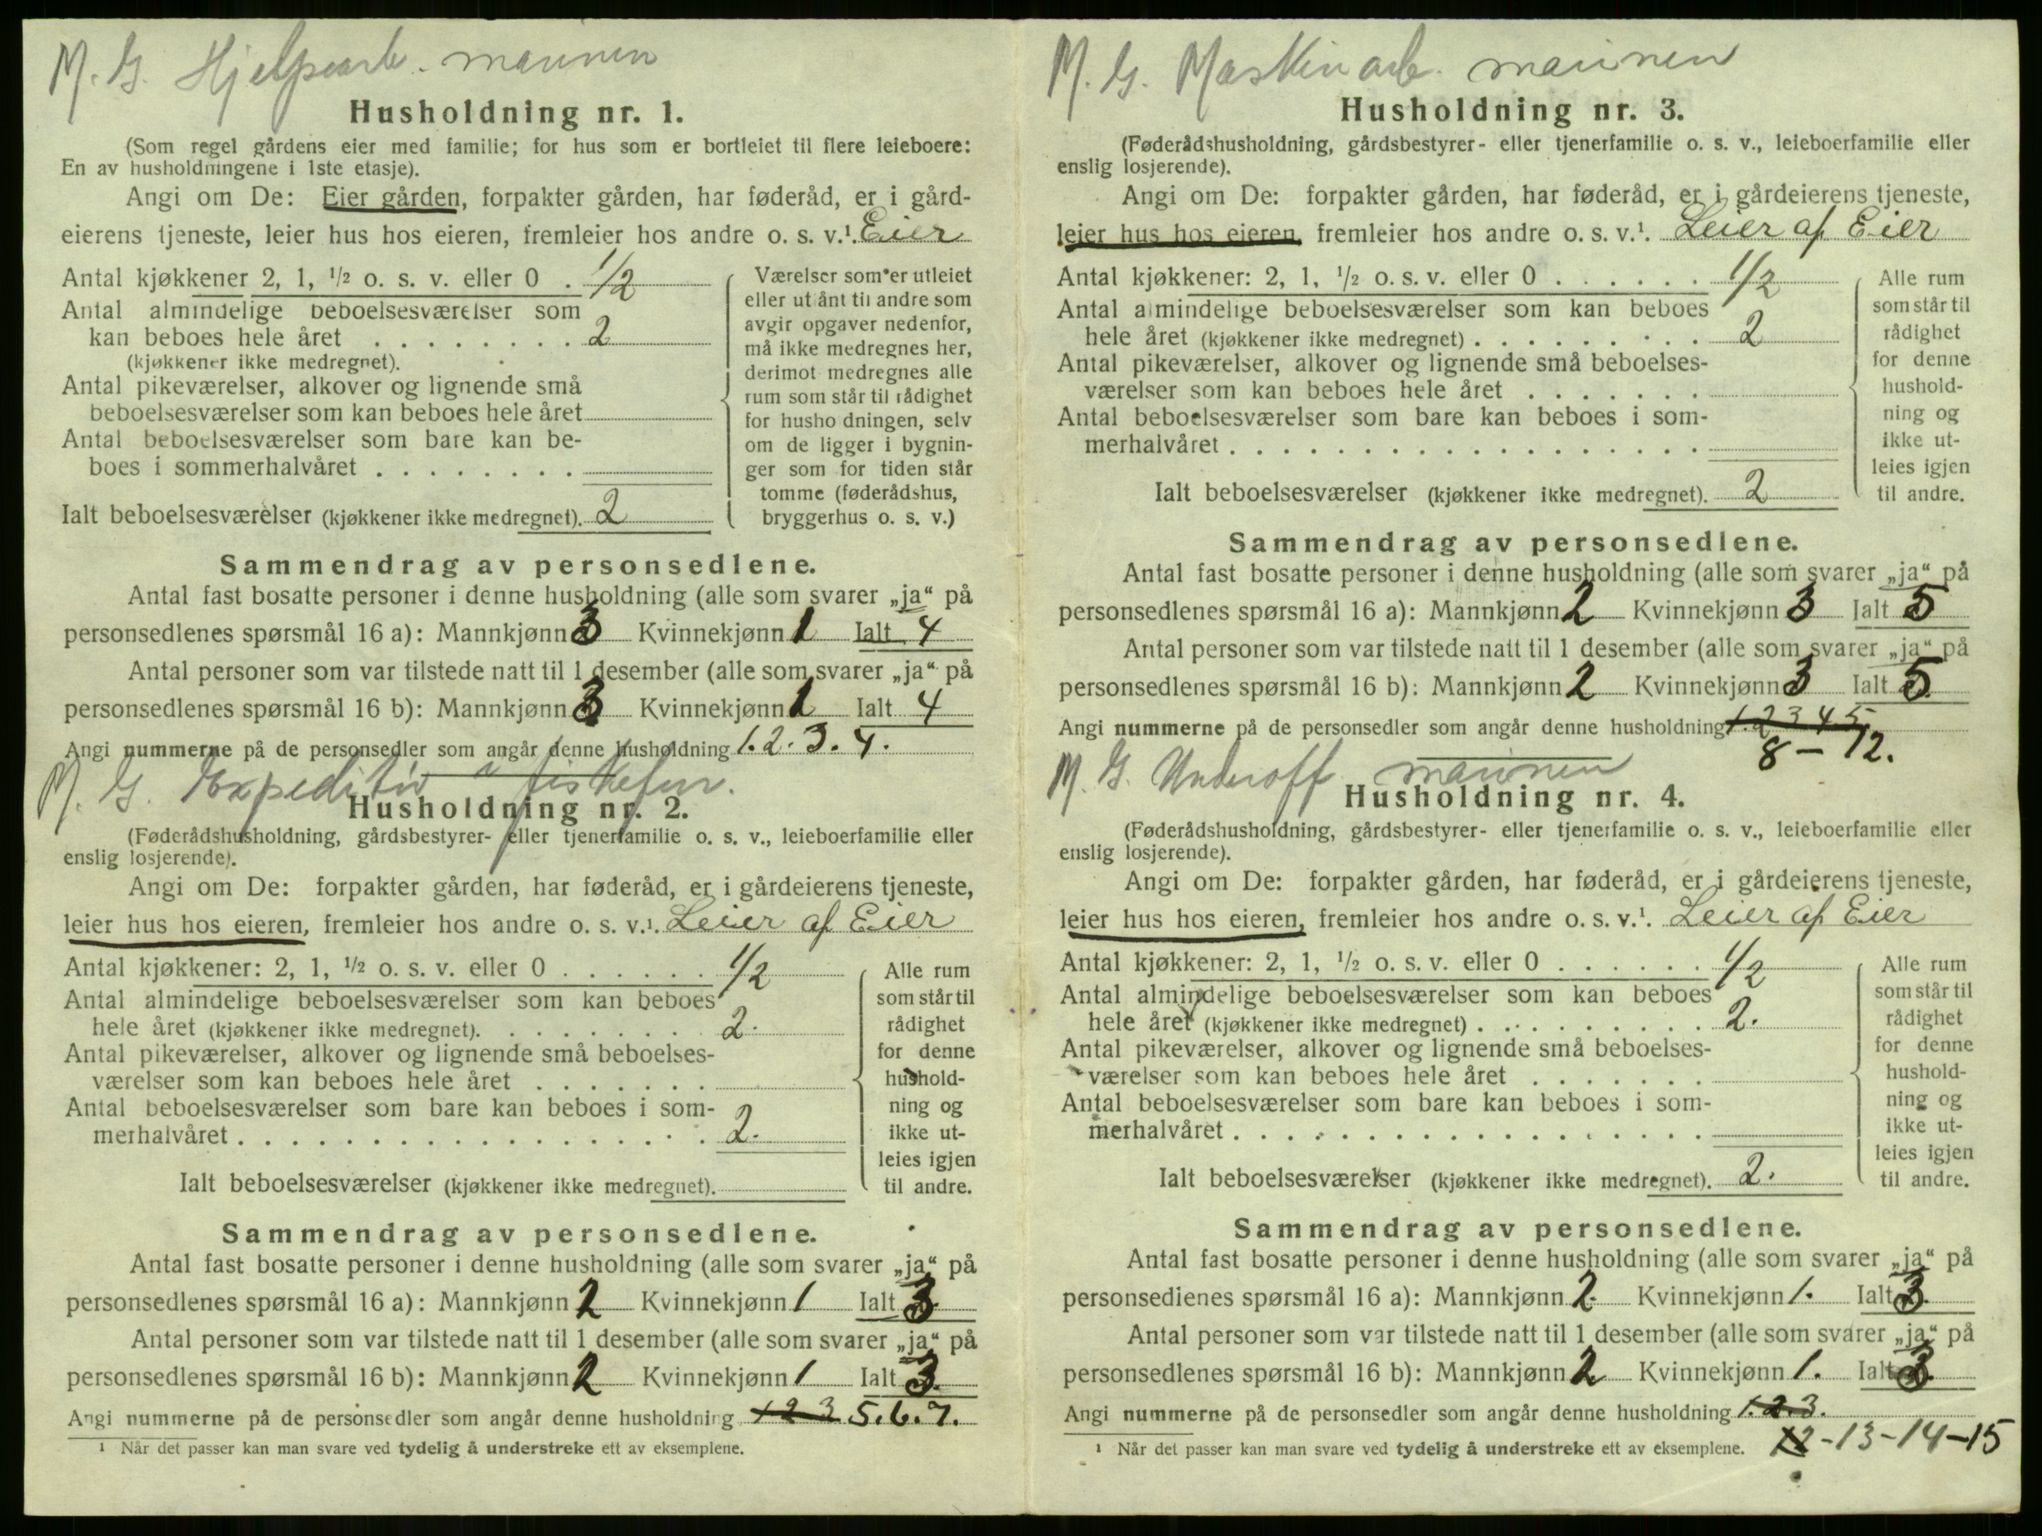 M. G. Hjelpearb. marinen
Husholdning nr. 1.
(Som regel gårdens eier med familie; for hus som er bortleiet til flere leieboere:
En av husholdningene i 1ste etasje).
Angi om De: Eier gården, forpakter gården, har føderåd, er i gård-
eierens tjeneste, leier hus hos eieren, fremleier hos andre o. s. v.¹. Eier
Antal kjøkkener 2, 1, ½ o. s. v. eller 0 . 1/2
Antal almindelige beboelsesværelser som
kan beboes hele året . . . . . . . . 2
(kjøkkener ikke medregnet).
Antal pikeværelser, alkover og lignende små
beboelsesværelser som kan beboes hele året
Antal beboelsesværelser som bare kan be-
boes i sommerhalvåret . . . . . . . .
Ialt beboelsesværelser (kjøkkener ikke medregnet). 2
Værelser som er utleiet
eller utlånt til andre som
avgir opgaver nedenfor,
må ikke medregnes her,
derimot medregnes alle
rum som står til rådighet
for husho dningen, selv
om de ligger i bygnin-
ger som for tiden står
tomme (føderådshus,
bryggerhus o. s. v.)
Sammendrag av personsedlene.
Antal fast bosatte personer i denne husholdning (alle som svarer „ja“ på
personsedlenes spørsmål 16 a): Mannkjønn 3 Kvinnekjønn 1 Ialt 4
Antal personer som var tilstede natt til 1 desember (alle som svarer „ja“ på
personsedlenes spørsmål 16 b): Mannkjønn 3 Kvinnekjønn 1 Ialt 4
Angi nummerne på de personsedler som angår denne husholdning 1. 2. 3. 4.
M. G. Expeditør fiskefor.
Husholdning nr. 2.
(Føderådshusholdning, gårdsbestyrer- eller tjenerfamilie o. s. v., leieboerfamilie eller
enslig losjerende).
Angi om De: forpakter gården, har føderåd, er i gårdeierens tjeneste,
leier hus hos eieren, fremleier hos andre o. s. v.¹. Leier af Eier
Antal kjøkkener: 2, 1, ½ o. s. v. eller 0 . . . . . . 1/2
Antal almindelige beboelsesværelser som kan beboes
hele året (kjøkkener ikke medregnet). . . . . . . . . 2.
Antal pikeværelser, alkover og lignende små beboelses-
værelser som kan beboes hele året . . . . . . .
Antal beboelsesværelser som bare kan beboes i som-
merhalvåret . . . . . . . . . . . . . . . . . . 2.
Ialt beboelsesværelser (kjøkkener ikke medregnet).
Alle rum
som står til
rådighet
for denne
hushold-
ning og
ikke ut-
leies igjen
til andre.
Sammendrag av personsedlene.
Antal fast bosatte personer i denne husholdning (alle som svarer „ja“ på
personsedlenes spørsmål 16 a): Mannkjønn 2 Kvinnekjønn 1 Ialt 3.
Antal personer som var tilstede natt til 1 desember (alle som svarer „ja“ på
personsedlenes spørsmål 16 b): Mannkjønn 2 Kvinnekjønn 1 Ialt 3.
Angi nummerne på de personsedler som angår denne husholdning 1 2 3. 5. 6. 7.
¹ Når det passer kan man svare ved tydelig å understreke ett av eksemplene.
M. G. Maskinarb. marinen
Husholdning nr. 3.
(Føderådshusholdning, gårdsbestyrer- eller tjenerfamilie o. s. v., leieboerfamilie eller
enslig losjerende).
Angi om De: forpakter gården, har føderåd, er i gårdeierens tjeneste,
leier hus hos eieren, fremleier hos andre o. s. v.¹. Leier af Eier
Antal kjøkkener: 2, 1, ½ o. s. v. eller 0 . . . . . . 1/2
Antal almindelige beboelsesværelser som kan beboes
hele året (kjøkkener ikke medregnet) . . . . . . . . . 2
Antal pikeværelser, alkover og lignende små beboelses-
værelser som kan beboes hele året . . . . . . .
Antal beboelsesværelser som bare kan beboes i som-
merhalvåret . . . . . . . . . . . . . . . . . .
Ialt beboelsesværelser (kjøkkener ikke medregnet). 2
Alle rum
som står til
rådighet
for denne
hushold-
ning og
ikke ut-
leies igjen
til andre.
Sammendrag av personsedlene.
Antal fast bosatte personer i denne husholdning (alle som svarer „ja“ på
personsedlenes spørsmål 16 a): Mannkjønn 2 Kvinnekjønn 3 Ialt 5
Antal personer som var tilstede natt til 1 desember (alle som svarer „ja“ på
personsedlenes spørsmål 16 b): Mannkjønn 2 Kvinnekjønn 3 Ialt 5
Angi nummerne på de personsedler som angår denne husholdning 1 2 3 4 5
8 – 12.
M. G. Underoff. marinen
Husholdning nr. 4.
(Føderådshusholdning, gårdsbestyrer- eller tjenerfamilie o. s. v., leieboerfamilie eller
enslig losjerende).
Angi om De: forpakter gården, har føderåd, er i gårdeierens tjeneste,
leier hus hos eieren, fremleier hos andre o. s. v.¹. Leier af Eier
Antal kjøkkener: 2, 1, ½ o. s. v. eller 0 . . . . . . 1/2
Antal almindelige beboelsesværelser som kan beboes
hele året (kjøkkener ikke medregnet) . . . . . . . . . 2.
Antal pikeværelser, alkover og lignende små beboelses-
værelser som kan beboes hele året . . . . . . .
Antal beboelsesværelser som bare kan beboes i som-
merhalvåret . . . . . . . . . . . . . . . . . .
Ialt beboelsesværelser (kjøkkener ikke medregnet). 2.
Alle rum
som står til
rådighet
for denne
hushold-
ning og
ikke ut-
leies igjen
til andre.
Sammendrag av personsedlene.
Antal fast bosatte personer i denne husholdning (alle som svarer „ja“ på
personsedlenes spørsmål 16 a): Mannkjønn 2. Kvinnekjønn 1. Ialt 3.
Antal personer som var tilstede natt til 1 desember (alle som svarer „ja“ på
personsedlenes spørsmål 16 b): Mannkjønn 2. Kvinnekjønn 1. Ialt 3.
Angi nummerne på de personsedler som angår denne husholdning 1. 2. 3.
¹ Når det passer kan man svare ved tydelig å understreke ett av eksemplene. 12 - 13 - 14 - 15